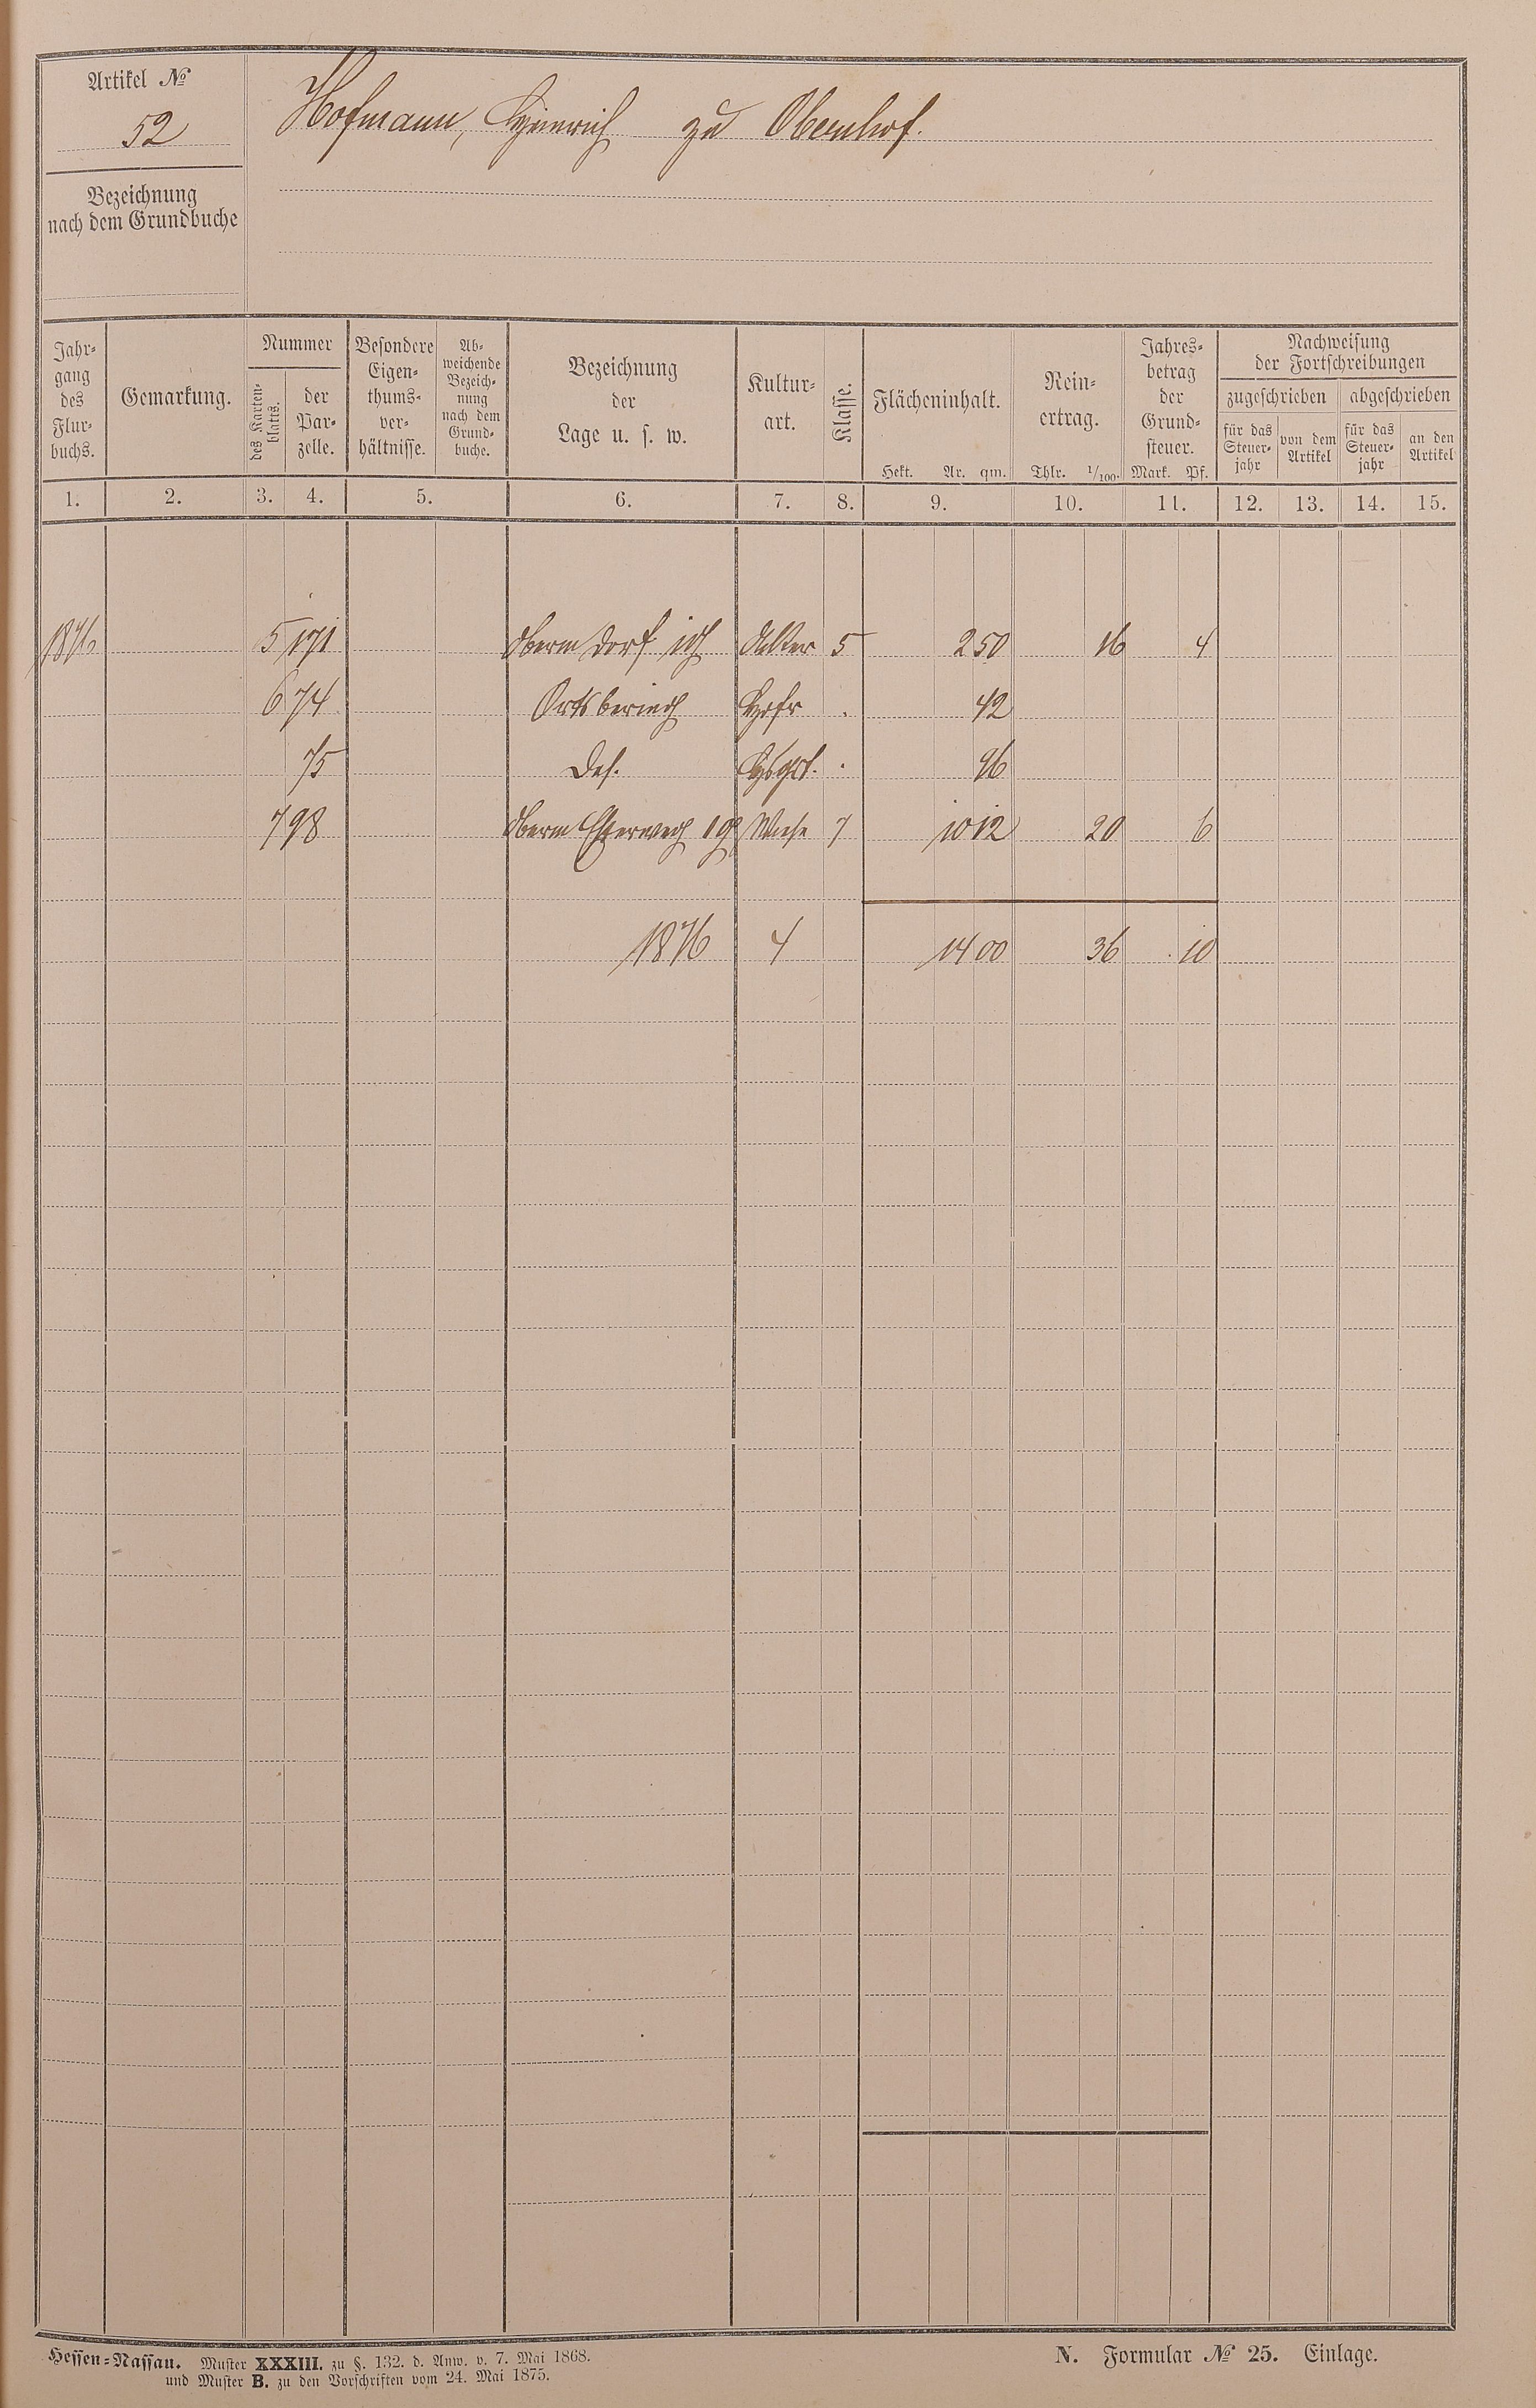 Artikel №
52
Hofmann, Heinrich zu Obernhof.
Bezeichnung
nach dem Grundbuche
Jahr-
gang
des
Flur-
buchs.
Gemarkung.
Nummer
des Karten-
blatts.
der
Par-
zelle.
Besondere
Eigen-
thums-
ver-
hältnisse.
Ab-
weichende
Bezeich-
nung
nach dem
Grund-
buche.
Bezeichnung
der
Lage u. s. w.
Kultur-
art.
Klasse.
Flächeninhalt.
Hekt. Ar. qm.
Rein-
ertrag.
Thlr. 1/100.
Jahres-
betrag
der
Grund-
steuer.
Mark. Pf.
Nachweisung
der Fortschreibungen
zugeschrieben
abgeschrieben
für das
Steuer-
jahr
von dem
Artikel
für das
Steuer-
jahr
an den
Artikel
1. 2. 3. 4. 5. 6. 7. 8. 9. 10. 11. 12. 13. 14. 15.
1876 5 171 Oberm Dorf Acker 5 2 50 16 4
6 74 Ortsberingh Hofr . 42
75 Des. Hsgrt. . 96
7 98 Oberm Wiese 7 10 12 20 6
1876 4 14 00 36 . 10
Hessen-Nassau. Muster XXXIII. zu §. 132. d. Anw. v. 7. Mai 1868.
und Muster B. zu den Vorschriften vom 24. Mai 1875.
N. Formular № 25. Einlage.